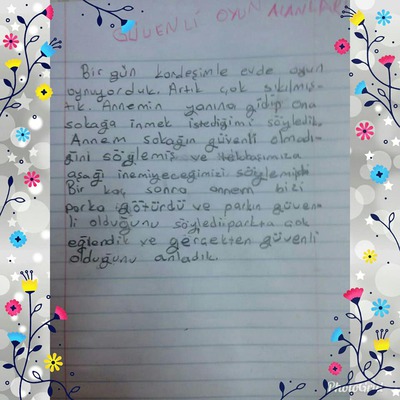 GÜVENLİ OYUN ALANLARI
Bir gün kardeşimle evde oyun
oynuyorduk. Artık çok sıkılmış-
tık. Annemin yanına gidip ona
sokağa inmek istediğimi söyledik.
Annem sokağın güvenli olmadı-
ğını söylemiş ve tek başımıza
aşağı inemiyeceğimizi söylemişti
Bir kaç sonra annem bizi
parka götürdü ve parkın güven-
li olduğunu söyledi.parkta çok
eğlendik ve gerçekten güvenli
olduğunu anladık.
PhotoGrid